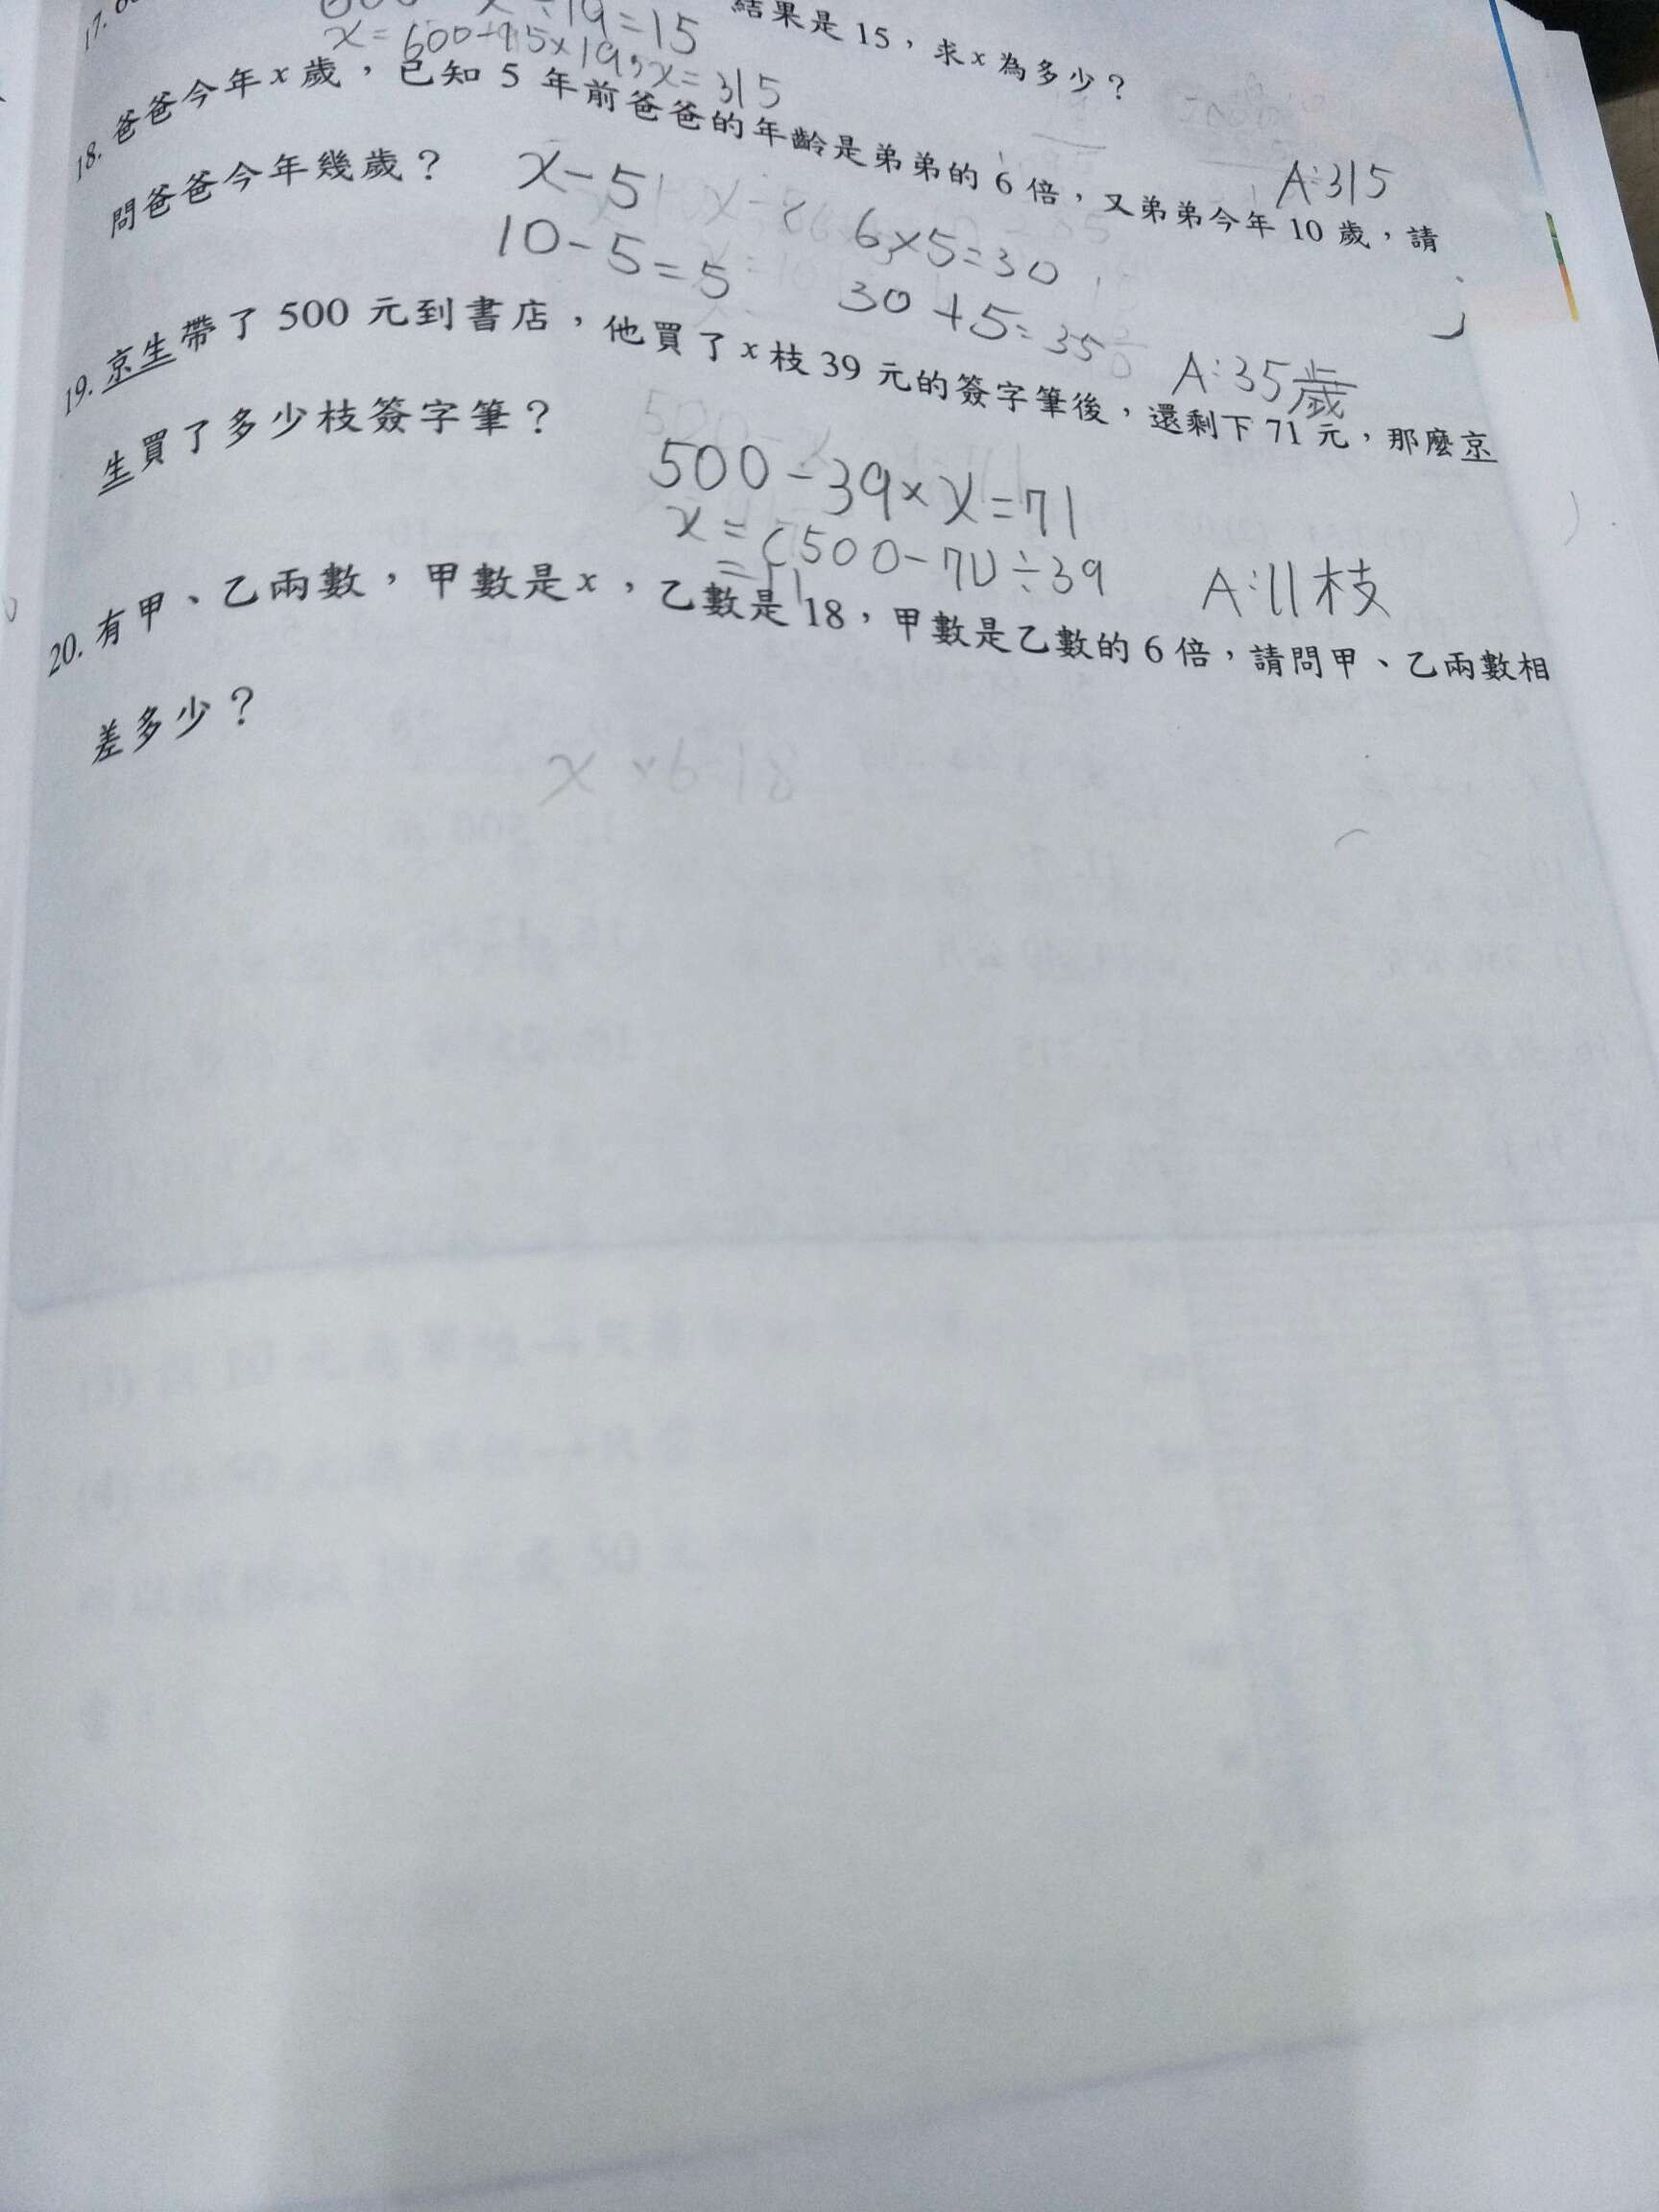 17.
÷19=15
結果是 15，求 x 為多少？
x=600-15×19，x=315
A:315
18. 爸爸今年 x 歲，已知 5 年前爸爸的年齡是弟弟的 6 倍，又弟弟今年 10 歲，請
問爸爸今年幾歲？
x-5
10-5=5
6×5=30
30+5=35
A:35歲
19. 京生帶了 500 元到書店，他買了 x 枝 39 元的簽字筆後，還剩下 71 元，那麼京
生買了多少枝簽字筆？
500-39×x=71
x=(500-71)÷39
=11
A:11枝
20. 有甲、乙兩數，甲數是 x，乙數是 18，甲數是乙數的 6 倍，請問甲、乙兩數相
差多少？